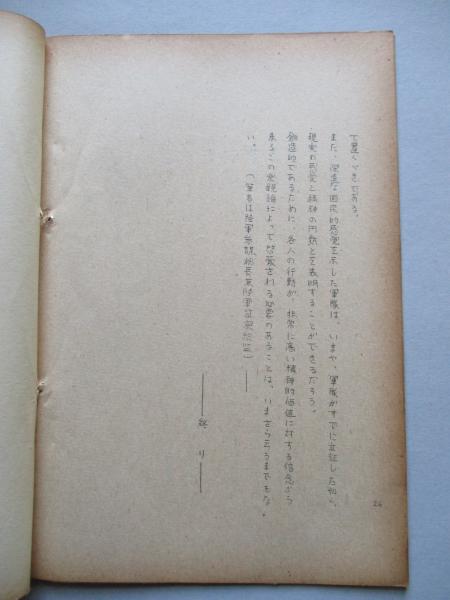 て置くべきである。
また、深遠な国民的感覚を示した軍隊は、いまや、軍隊がすでに立証した如く、
現実の感覚と精神の円熟とを表明することができるだろう。
創造的であるために、各人の行動が、非常に高い精神的価値に対する信念から
来るこの楽観論によって啓蒙される必要のあることは、いまさら云うまでもな
い。　（筆者は陸軍参謀総長兼陸軍
――終り――
26